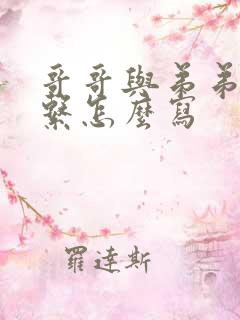 哥哥與弟弟
繫怎麼寫
羅達斯